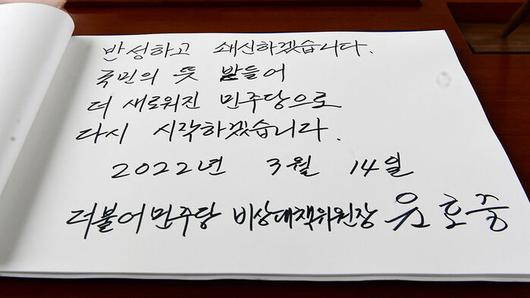 반성하고 쇄신하겠습니다.
국민의 뜻 받들어
더 새로워진 민주당으로
다시 시작하겠습니다.
2022년 3월 14일
더불어민주당 비상대책위원장 윤호중